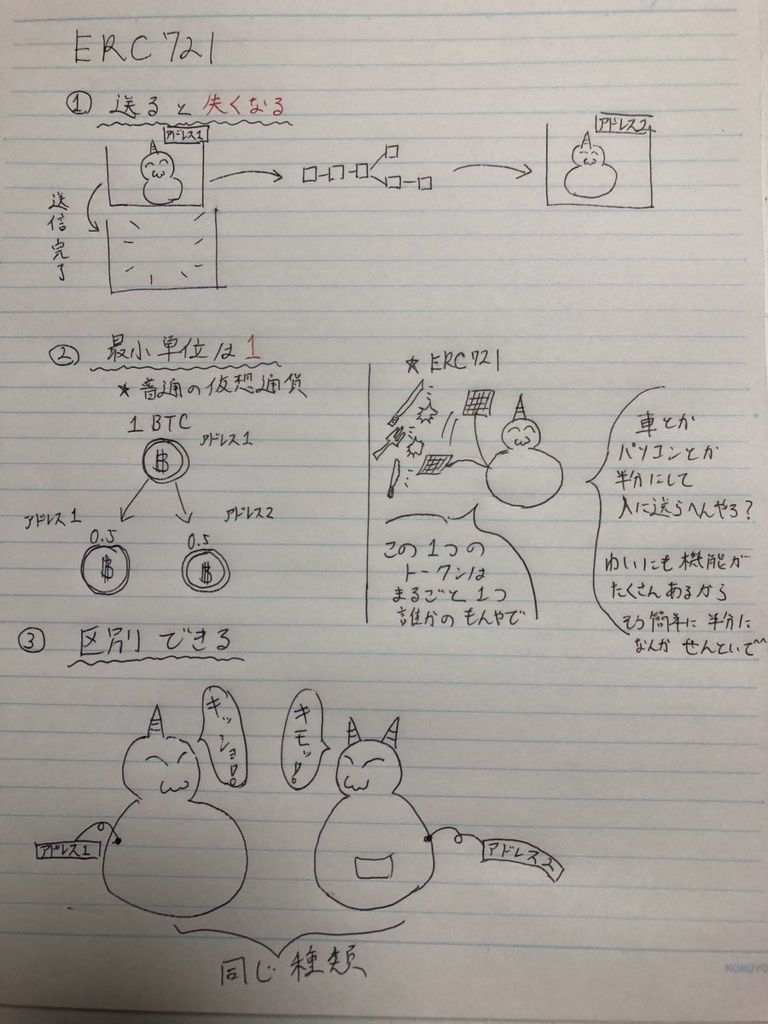 ERC721
① 送ると失くなる
アドレス1
アドレス2
送信完了
② 最小単位は1
★普通の仮想通貨
1 BTC
アドレス1
アドレス1
0.5
アドレス2
0.5
★ERC721
この1つの
トークンは
まるごと1つ
誰かのもんやで
車とか
パソコンとか
半分にして
人に送らへんやろ?
わいにも機能が
たくさんあるから
そう簡単に半分に
なんかせんといで^^
③ 区別できる
キッショ!。
キモッ!。
アドレス1
アドレス2
同じ種類
KOKUYO